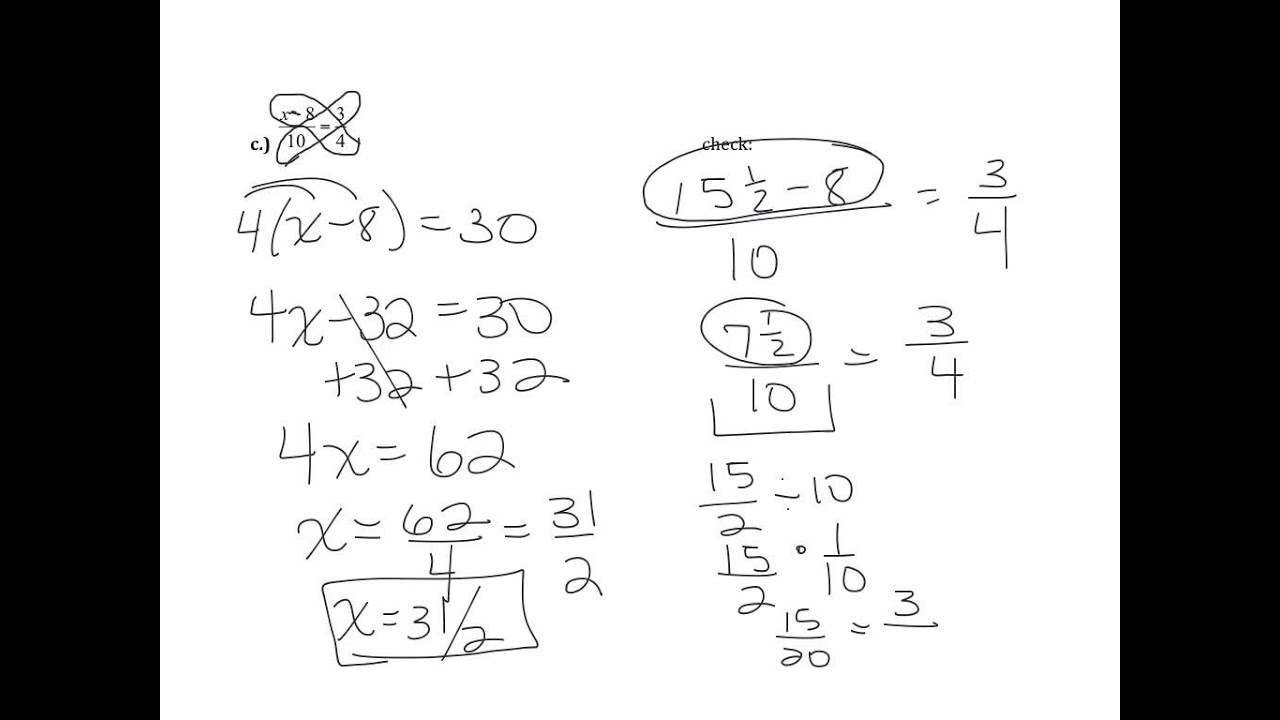 c.) x - 8 / 10 = 3 / 4
4(x-8) = 30
4x - 32 = 30
+32 +32
4x = 62
x = 62/4 = 31/2
x = 31/2
check:
15 1/2 - 8 / 10 = 3/4
7 1/2 / 10 = 3/4
15/2 ÷ 10
15/2 · 1/10
15/20 = 3/